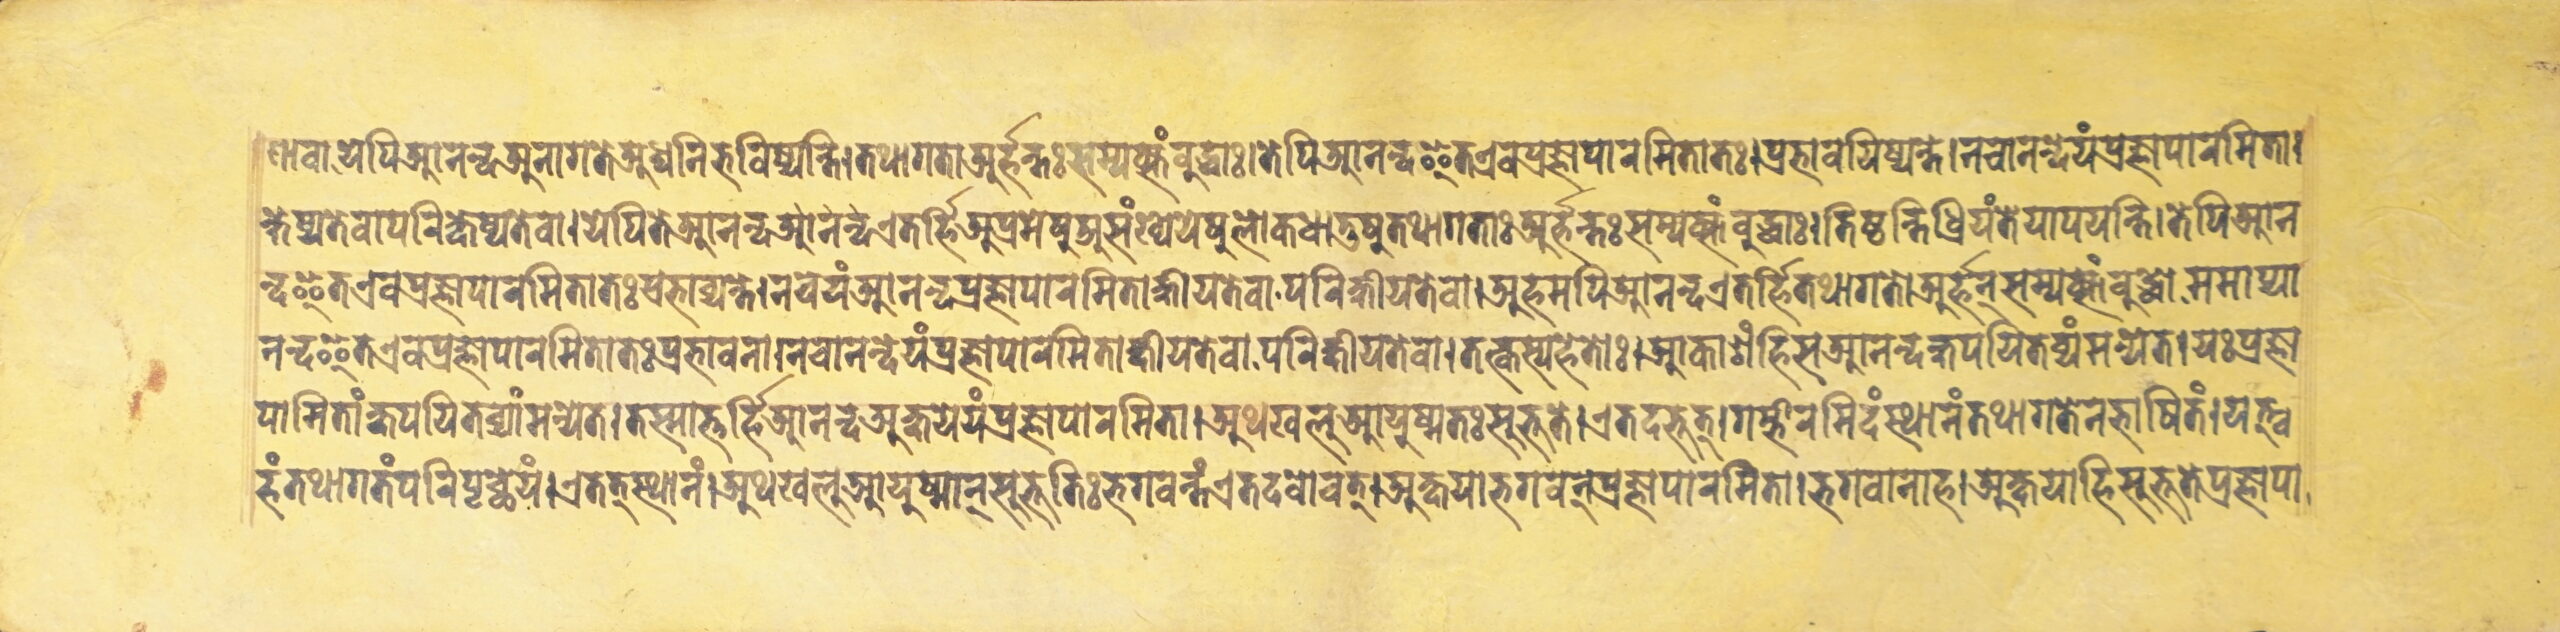 णावा येपिआनन्दअनागतेअध्वनिभविष्यन्ति।तथागताअर्हन्तःसम्यक्संबुद्धाः।तेपिआनन्दइतएवप्रज्ञापारमितातः।प्रभावयिष्यन्ते।नचानन्देयंप्रज्ञापारमिता।
क्षेष्यतेवापरिक्षेष्यतेवा।येपितेआनन्दआनन्दएतर्हिअप्रमेषुअसंख्येयेषुलोकधातुषुतथागताःअर्हन्तःसम्यक्संबुद्धाः।तिष्ठन्तिध्रियंतेयापयन्ति।तेपिआन
न्दइतएवप्रज्ञापारमितातःप्रभाव्यन्ते।नचेयंआनन्दप्रज्ञापारमिताक्षीयतेवा परिक्षीयतेवा।अहमपिआनन्दएतर्हितथागतोअर्हन्सम्यक्संबुद्धो ममाप्या
नन्दइतएवप्रज्ञापारमितातःप्रभावना।नचानन्देयंप्रज्ञापारमिताक्षीयतेवा परिक्षीयतेवा।तत्कस्यहेतोः।आकाशंहिसआनन्दक्षपयितव्यंमन्येत।यःप्रज्ञा
पामितांक्षपयितव्यांमन्येत।तस्मात्तर्हिआनन्देअक्षयेयंप्रज्ञापारमिता।अथखलुआयुष्मतःसुभूते।एतदभूत्।गम्भीरमिदंस्थानंतथागतेनभाषितं।यत्त्व
हंतथागतंपरिपृच्छेयं।एतत्स्थानं।अथखलुआयुष्मान्सुभूतिःभगवन्तंएतदवोचत्।अक्षयाभगवन्प्रज्ञापारमिता।भगवानाह।अक्षयाहिसुभूतेप्रज्ञापा